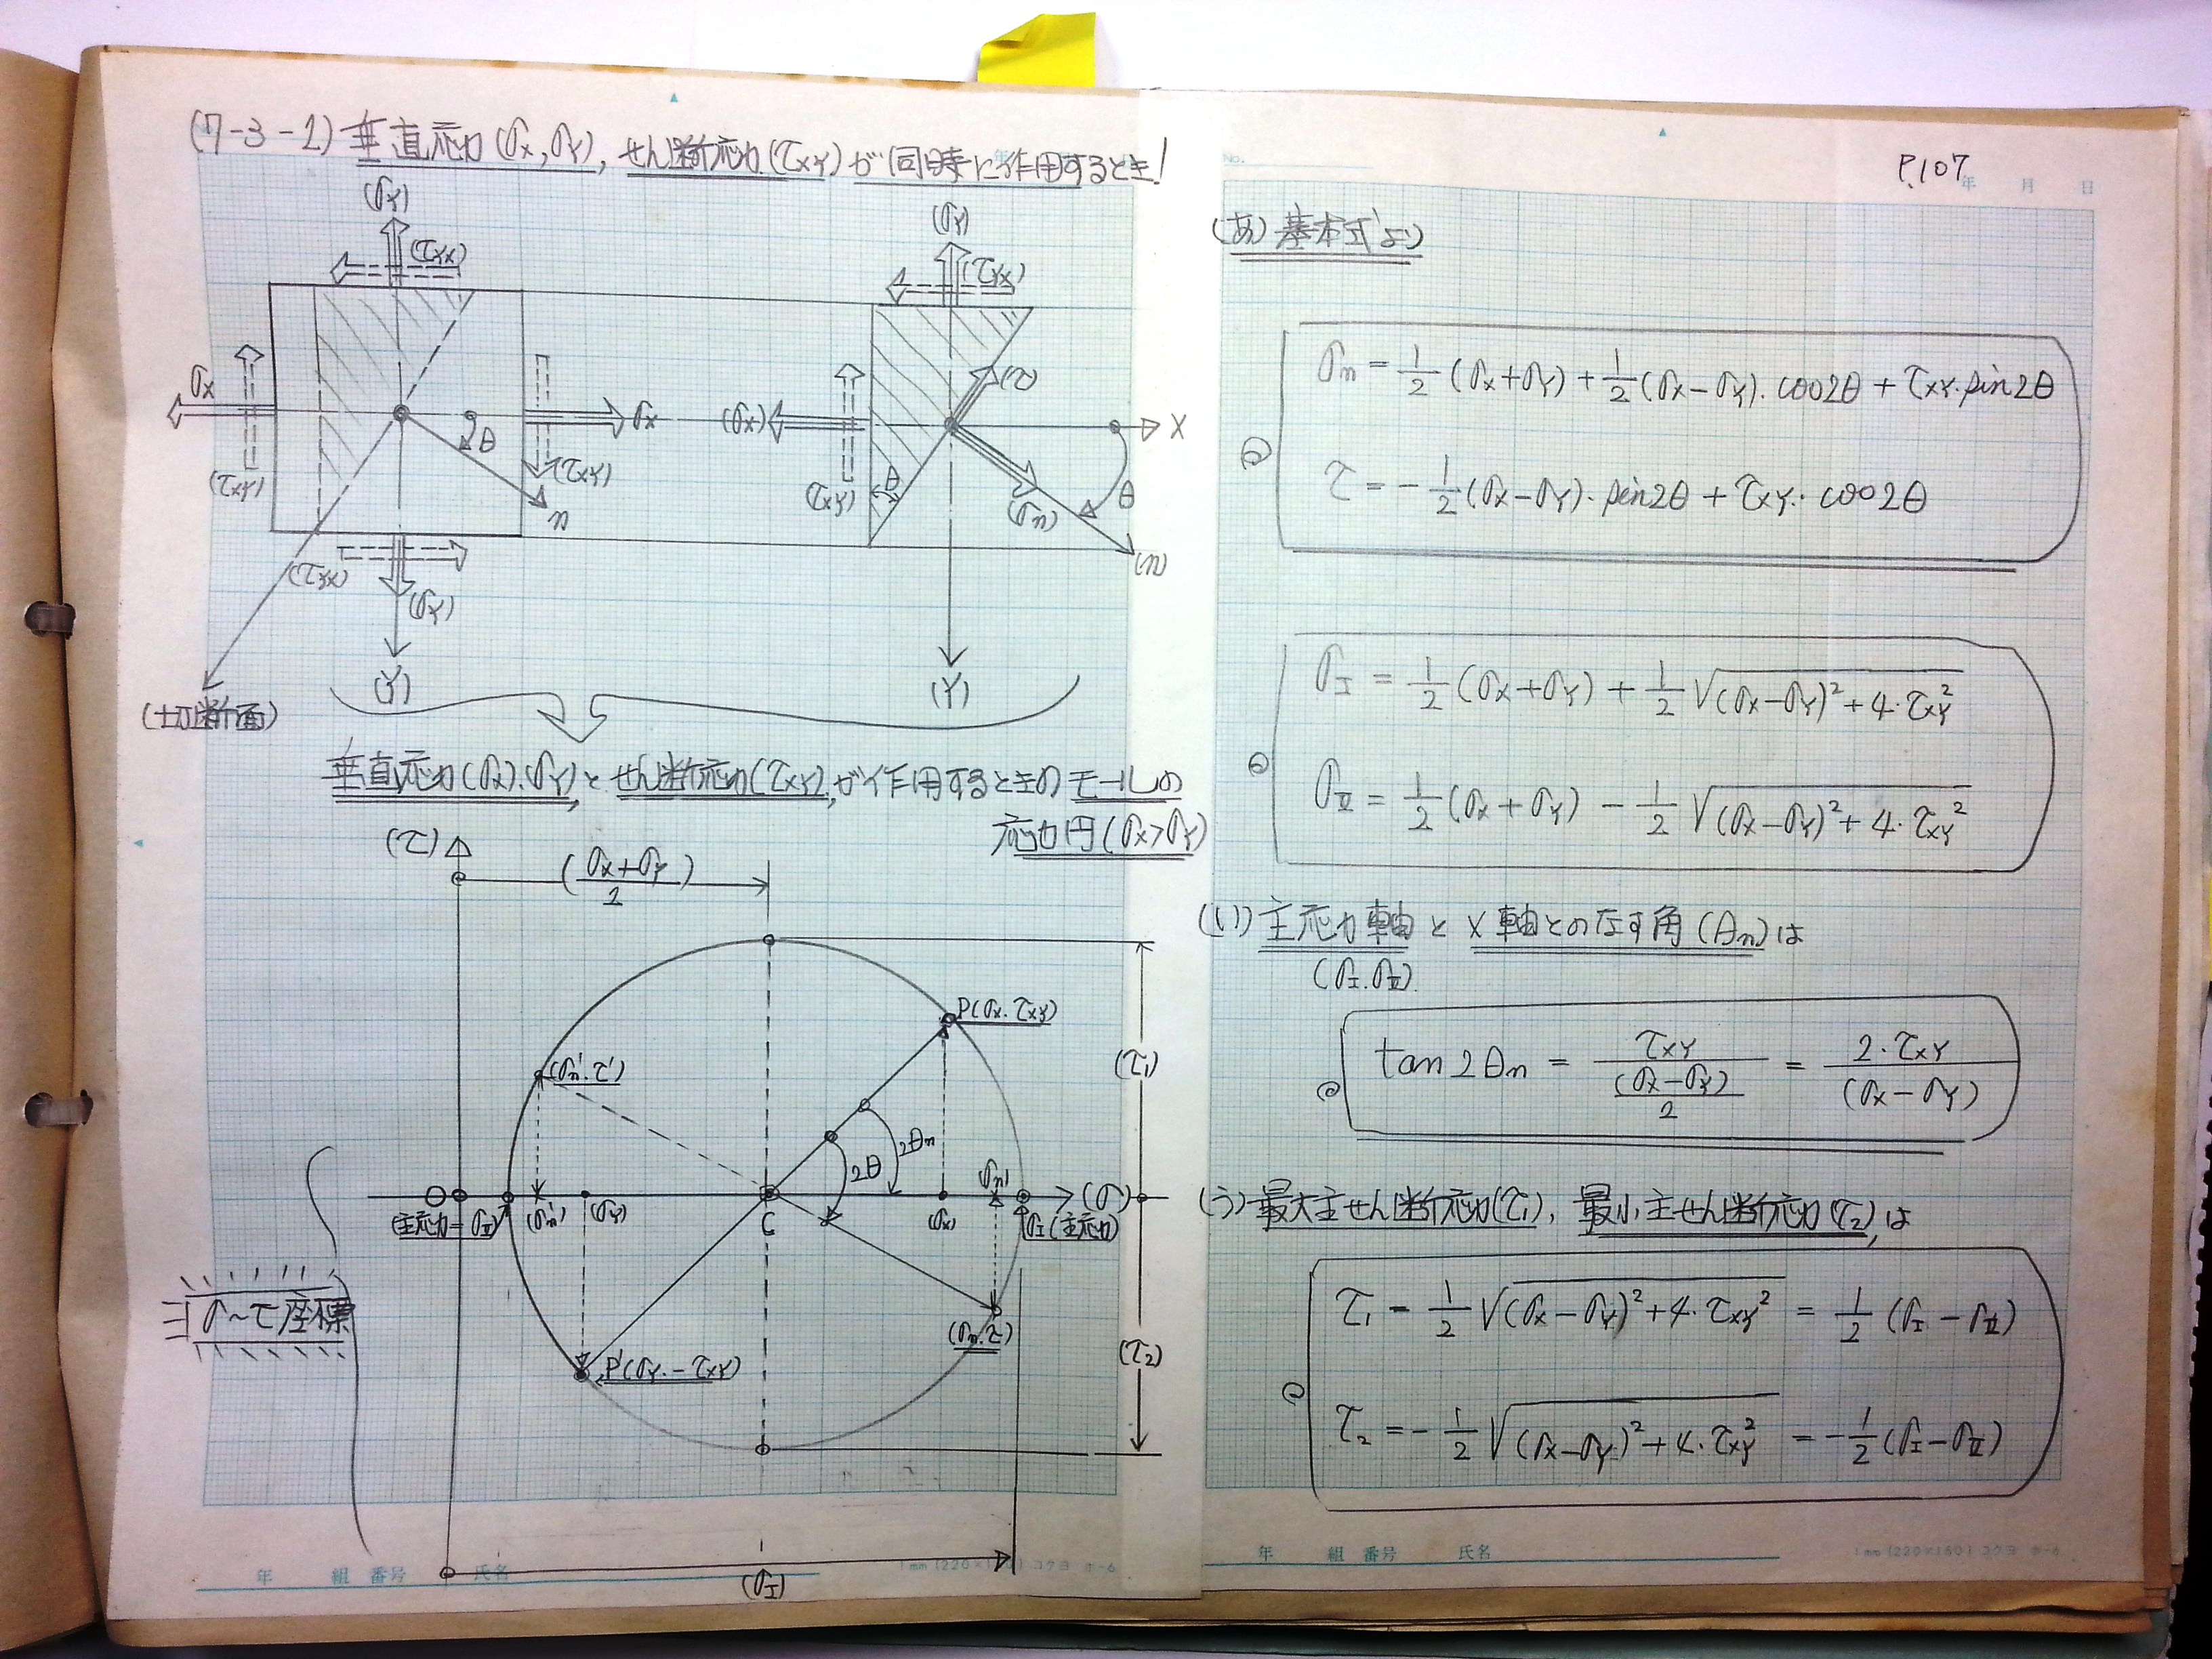 (7-3-1) 垂直応力(σx,σY),せん断応力(τxY)が同時に作用するとき!
(σY)
(τYx)
σx
(τxY)
θ
σx
(τxY)
n
(τYx)
(σY)
(Y)
(切断面)
(σY)
(τYx)
(σx)
(τxY)
θ
(τ)
X
θ
(σn)
(n)
(Y)
垂直応力(σx).(σY)とせん断応力(τxY)が作用するときのモールの
応力円(σx>σY)
(τ)
(σx+σY)/2
P(σx.τxY)
(σn'.τ')
(τ1)
2θn
2θ
σn
O
(主応力=σⅡ)
(σn')
(σY)
C
(σx)
σⅠ(主応力)
(σ)
(σn.τ)
P'(σY.-τxY)
(τ2)
σ~τ座標
(σⅠ)
年 組 番号 氏名
1mm(220×160)コクヨ ホ-6
No.
P.107
年 月 日
(あ)基本式より
σn = 1/2 (σx+σY) + 1/2 (σx-σY).cos2θ + τxY.sin2θ
τ = -1/2 (σx-σY).sin2θ + τxY.cos2θ
σⅠ = 1/2 (σx+σY) + 1/2 √(σx-σY)²+4.τxY²
σⅡ = 1/2 (σx+σY) - 1/2 √(σx-σY)²+4.τxY²
(い)主応力軸とX軸とのなす角(θn)は
(σⅠ.σⅡ)
tan2θn = τxY/((σx-σY)/2) = 2.τxY/(σx-σY)
(う)最大主せん断応力(τ1),最小主せん断応力(τ2)は
τ1 = 1/2 √(σx-σY)²+4.τxY² = 1/2 (σⅠ-σⅡ)
τ2 = -1/2 √(σx-σY)²+4.τxY² = -1/2 (σⅠ-σⅡ)
年 組 番号 氏名
1mm(220×160)コクヨ ホ-6